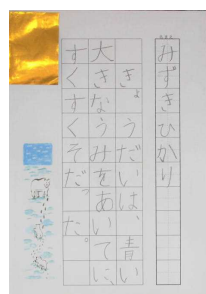 みずきひかり
きょうだいは、青い
大きなうみをあいてに、
すくすくそだった。